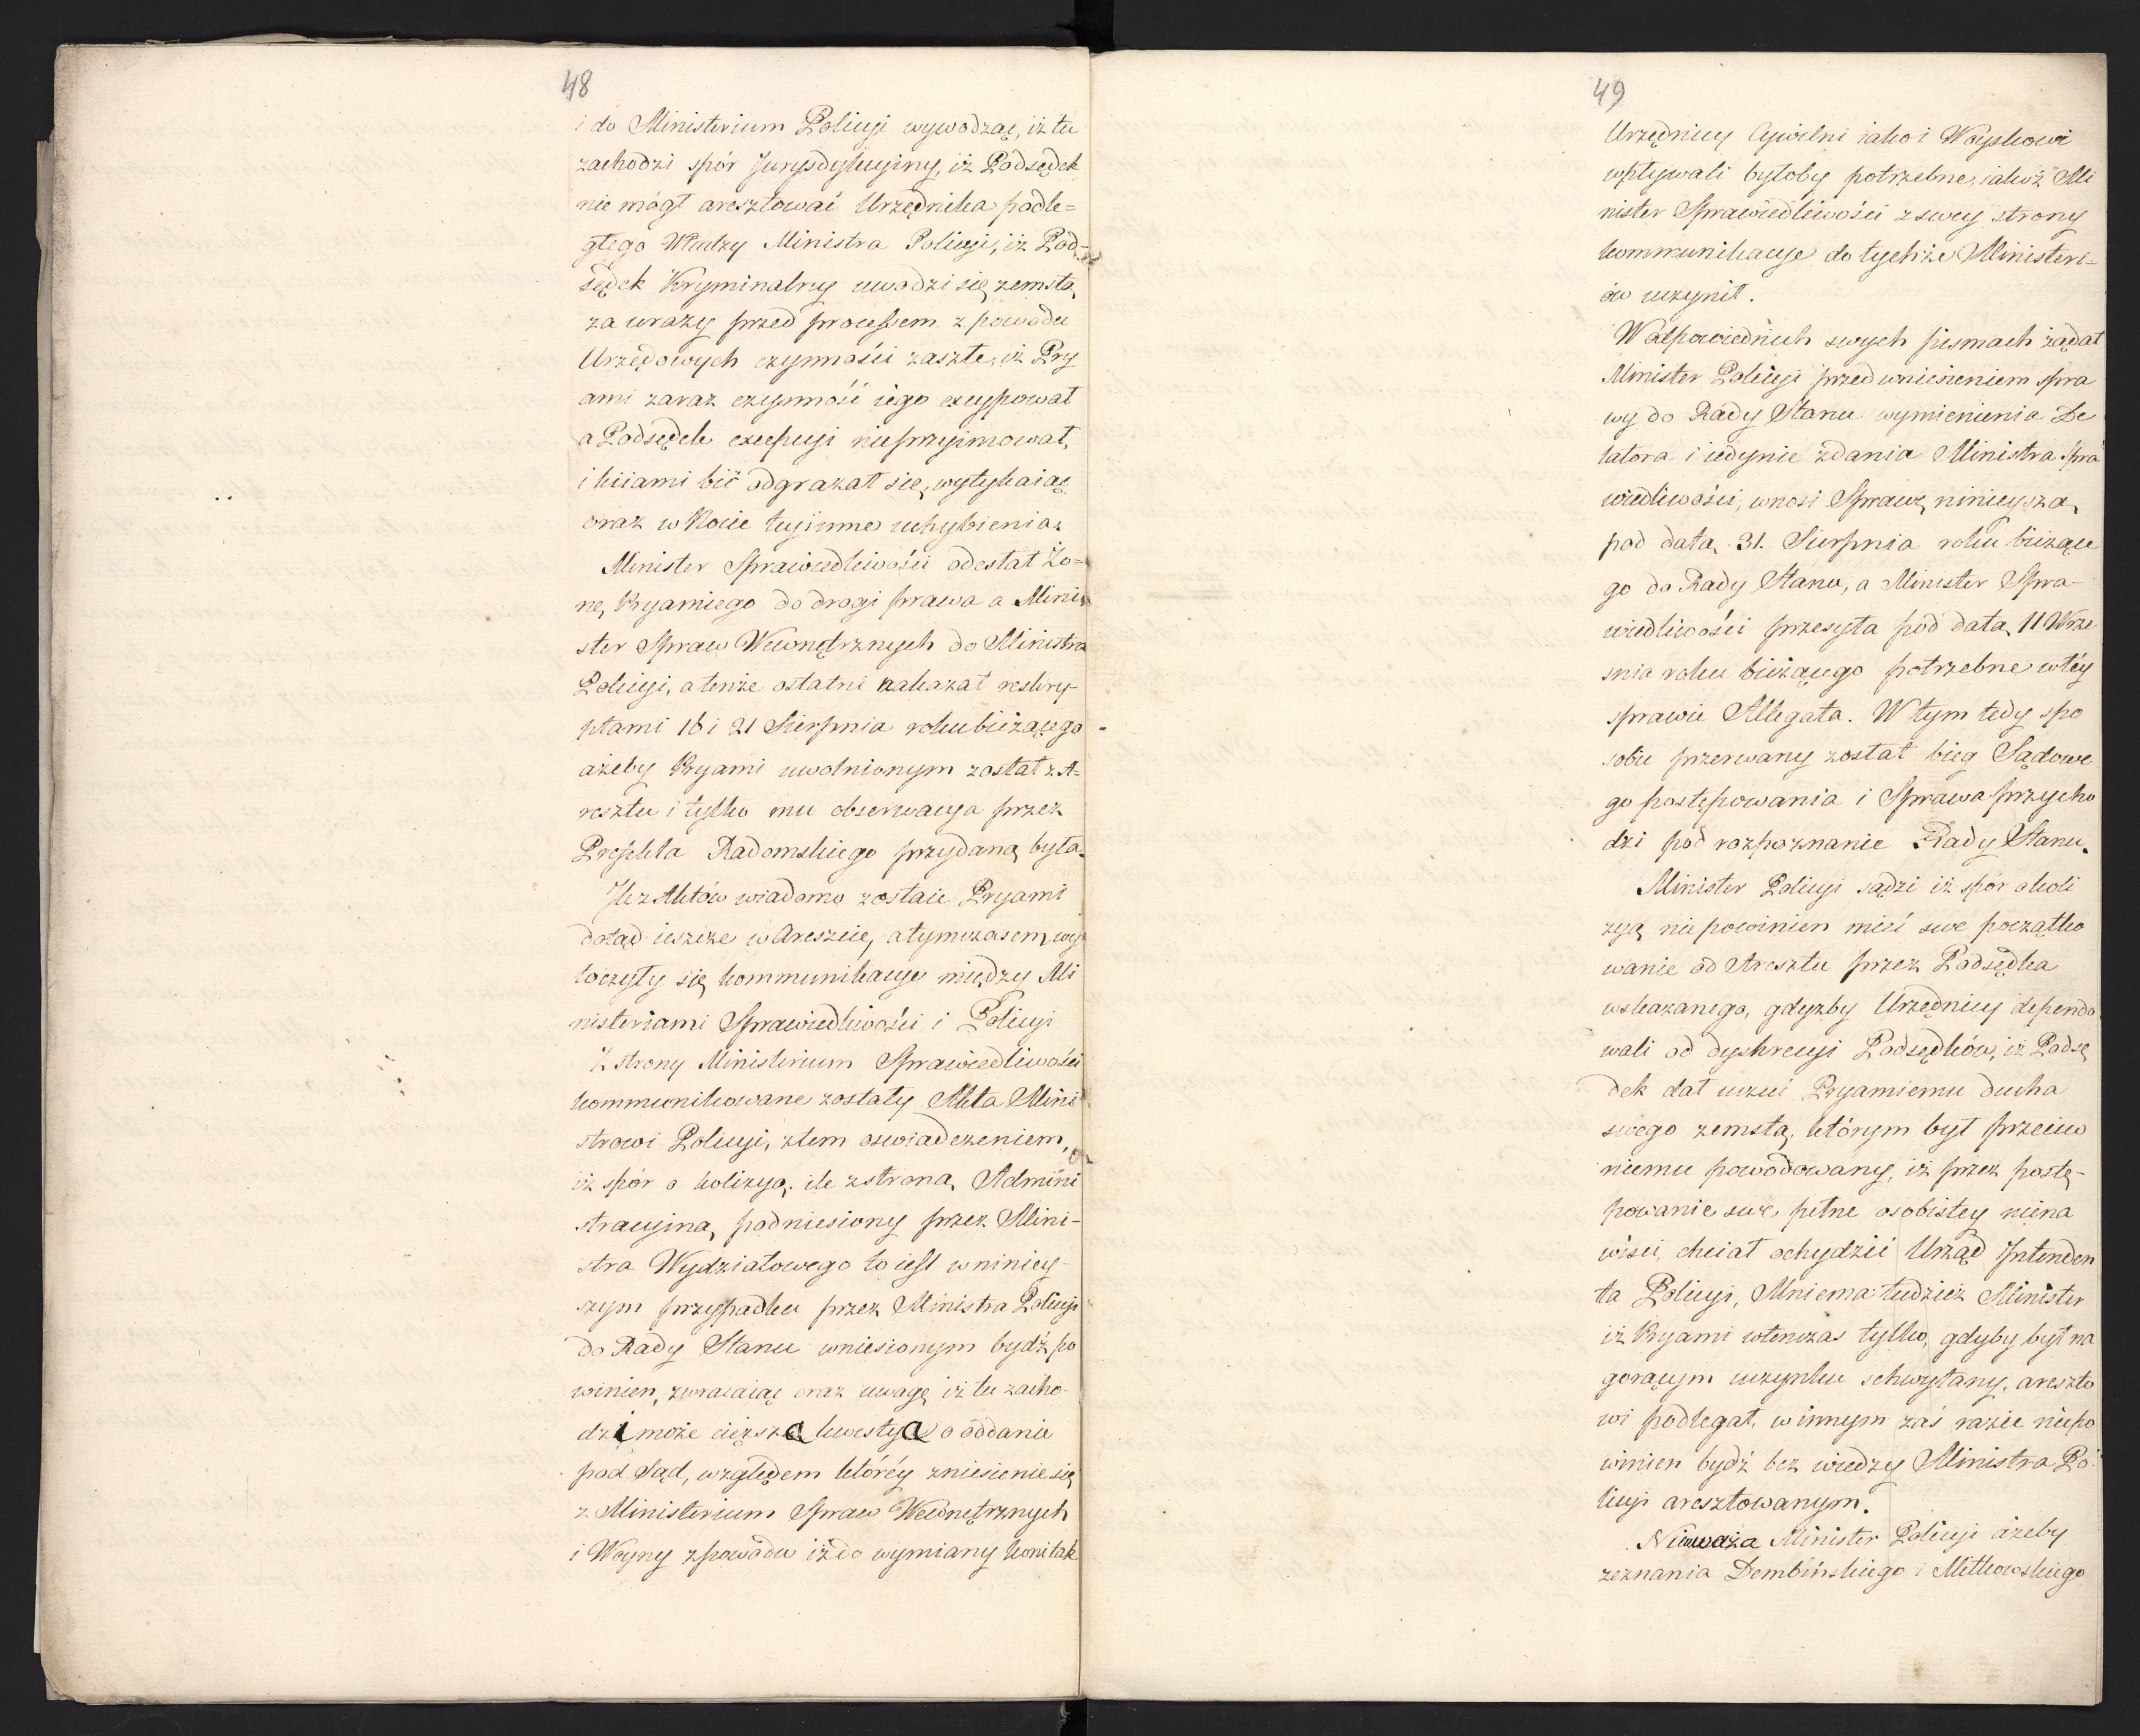 48
i do Ministerium Policyi wywodząc, iż tu
zachodzi spór Jurysdykcyiny, iż Podsędek
nie mógł aresztować Urzędnika podle=
głego Władzy Ministra Policyi, iż Pod-
sędek Kryminalny uwodzi się zemstą
za urazy przed processem z powodu
Urzędowych czynności zaszłe, iż Pry
ami zaraz czynność iego excypował
a Podsędek excepcyi nieprzyimował,
i kiiami bić odgrażał się, wytykaiąc
oraz w Nocie teyinne uchybienia.
Minister Sprawiedliwości odesłał Żo=
nę Pryamiego do drogi prawa a Mini
ster Spraw Wewnętrznych do Ministra
Policyi, a tenże ostatni nakazał reskry-
ptami 16 i 21 Sierpnia roku bieżącego
ażeby Pryami uwolnionym został z A=
resztu i tylko mu obserwacya przez
Prefekta Radomskiego przydaną była.
Jle z Aktów wiadomo zostaie Pryami
dotąd ieszcze w Areszcie, a tymczasem wy
toczyły się kommunikacye między Mi
nisteriami Sprawiedliwości i Policyi
Z strony Ministerium Sprawiedliwości
kommunikowane zostały Akta Mini
strowi Policyi, z tem oswiadczeniem,
iż spór o kolizyą, ile z stroną Admini
stracyiną podniesiony przez Mini-
stra Wydziałowego to iest w niniey-
szym przypadku przez Ministra Policyi
do Rady Stanu wniesionym bydź po
winien, zwracaiąc oraz uwagę iż tu zacho-
dzi może cięższa kwestya o oddanie
pod Sąd, względem któréy zniesienie się
z Ministerium Spraw Wewnętrznych
i Woyny z powodu iż do wymiany koni tak
49
Urzędnicy Cywilni iako i Woyskowi
wpływali byłoby potrzebne, iakoż Mi
nister Sprawiedliwości z swey strony
kommunikacye do tychże Ministeri=
ów uczynił.
W odpowiednich swych pismach żądał
Minister Policyi przed wniesieniem spra
wy do Rady Stanu wymienienia De
latora i iedynie zdania Ministra Spra
wiedliwości, wnosi Sprawę ninieyszą
pod datą 31. Sierpnia roku bieżące
go do Rady Stanu, a Minister Spra-
wiedliwości przesyła pod datą 11 Wrze
snia roku bieżącego potrzebne w téy
sprawie Allegata. W tym tedy spo
sobie przerwany został bieg Sądowe
go postępowania i Sprawa przycho
dzi pod rozpoznanie Rady Stanu.
Minister Policyi sądzi iż spór o koli
zyę nie powinien mieć swe początko
wanie od Aresztu przez Podsędka
wskazanego, gdyżby Urzędnicy dependo
wali od dyskrecyi Podsędków, iż Podsę
dek dał uczuć Pryamiemu ducha
swego zemstą, którym był przeciw
niemu powodowany, iż przez postę-
powanie swe pełne osobistey niena
wiści, chciał ochydzić Urząd Jntenden
ta Policyi, Mniema tudzież Minister
iż Pryami wtenczas tylko, gdyby był na
gorącym uczynku schwytany, areszto
wi podlegał, w innym zaś razie niepo
winien bydź bez wiedzy Ministra Po
licyi aresztowanym.
Nieuważa Minister Policyi ażeby
zeznania Dembińskiego i Mitkowskiego